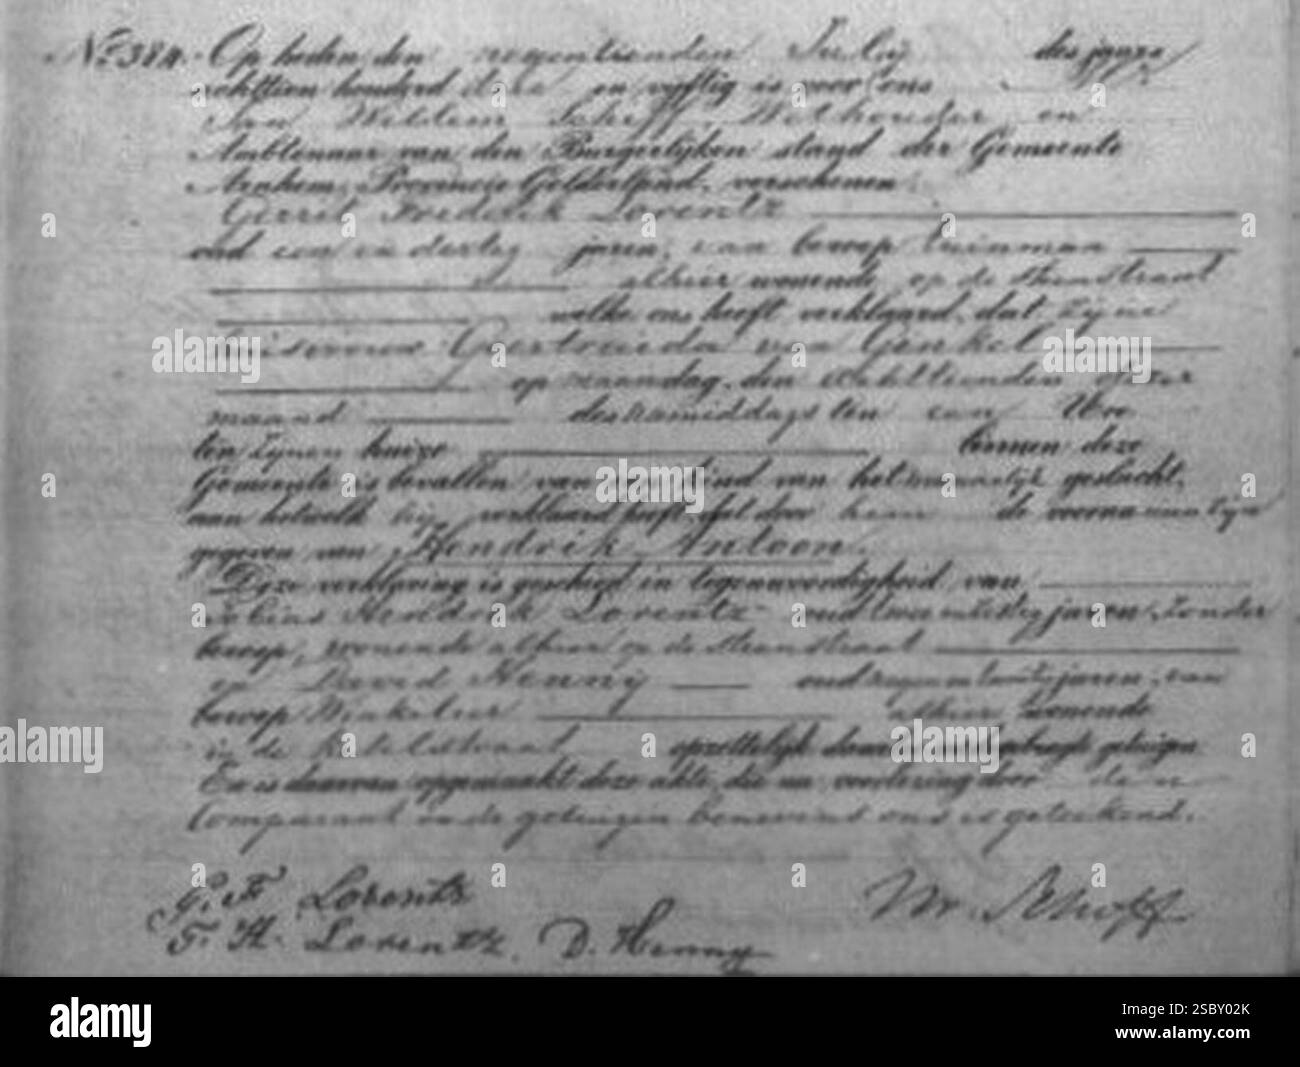 No. 384. Op heden den negentienden Julij des jaars
achttien honderd drie en vijftig is voor ons
Jan Willem Schiff Wethouder en
Ambtenaar van den Burgerlijken stand der Gemeente
Arnhem, Provincie Gelderland, verschenen
Gerrit Fredrik Lorentz
oud een en dertig jaren, van beroep tuinman
alhier wonende op de Steenstraat
welke ons heeft verklaard, dat zijne
huisvrouw Geertruida van Ginkel
op maandag den achttienden dezer
maand des namiddags ten een Ure
ten zijnen huize binnen deze
Gemeente is bevallen van een kind van het mannelijk geslacht,
aan hetwelk hij verklaard heeft, dat door hem de voornamen zijn
gegeven van Hendrik Antoon.
Deze verklaring is geschied in tegenwoordigheid van
Tobias Hendrik Lorentz oud jaren, zonder
beroep, wonende alhier op de Steenstraat
en David Henny oud jaren, van
beroep Winkelier alhier wonende
in de Ketelstraat opzettelijk daartoe medegebragte getuigen
En is daarvan opgemaakt deze akte, die na voorlezing door den
Comparant en de getuigen benevens ons is geteekend.
G. F. Lorentz Schiff
T. H. Lorentz. D. Henny
alamy
Image ID: 2SBY02K
www.alamy.com